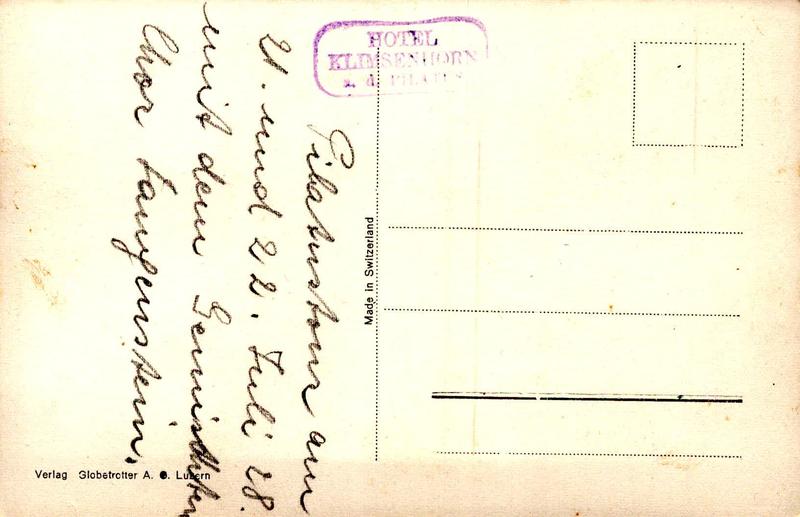 HOTEL
KLIMSENHORN
a. d. PILATUS
Pilatustour am
21. und 22. Juli 28.
mit dem Gemischten
Chor Langenstein.
Made in Switzerland
Verlag Globetrotter A. G. Luzern